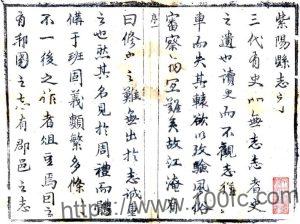 紫陽縣志序
三代有史而無志志者史
之遺也讀史而不觀志
車而失其轅欲以攷驗風俗
審察 冝難矣故江淹有
序
曰修史之難無出於志誠
之也然其名見於周禮而體
備于班固義類繁多條
不一後之作者俎豆焉曰
有邦國之志有郡邑之志
https://www.1000fc.com